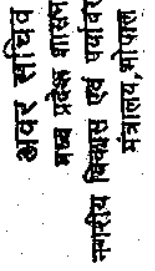 अवर सचिव
मध्य प्रदेश शासन
नगरीय विकास एवं पर्यावर
मंत्रालय, भोपाल